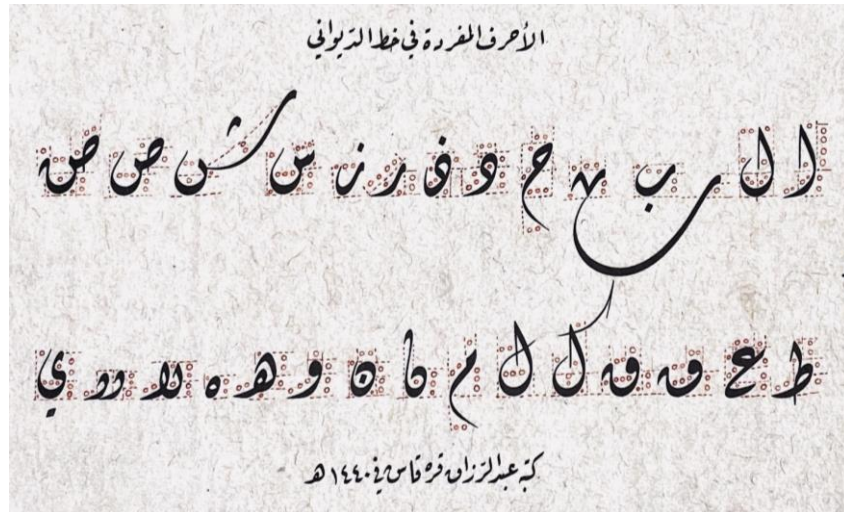 الأحرف المفردة في خط الديواني
ا ل ب ب ح د ذ ر ز س ش ص ض
ط ع ف ق ك ل م ن ن و ه ه لا دد ي
كتبه عبدالرزاق قره قاش في ١٤٤٠ هـ